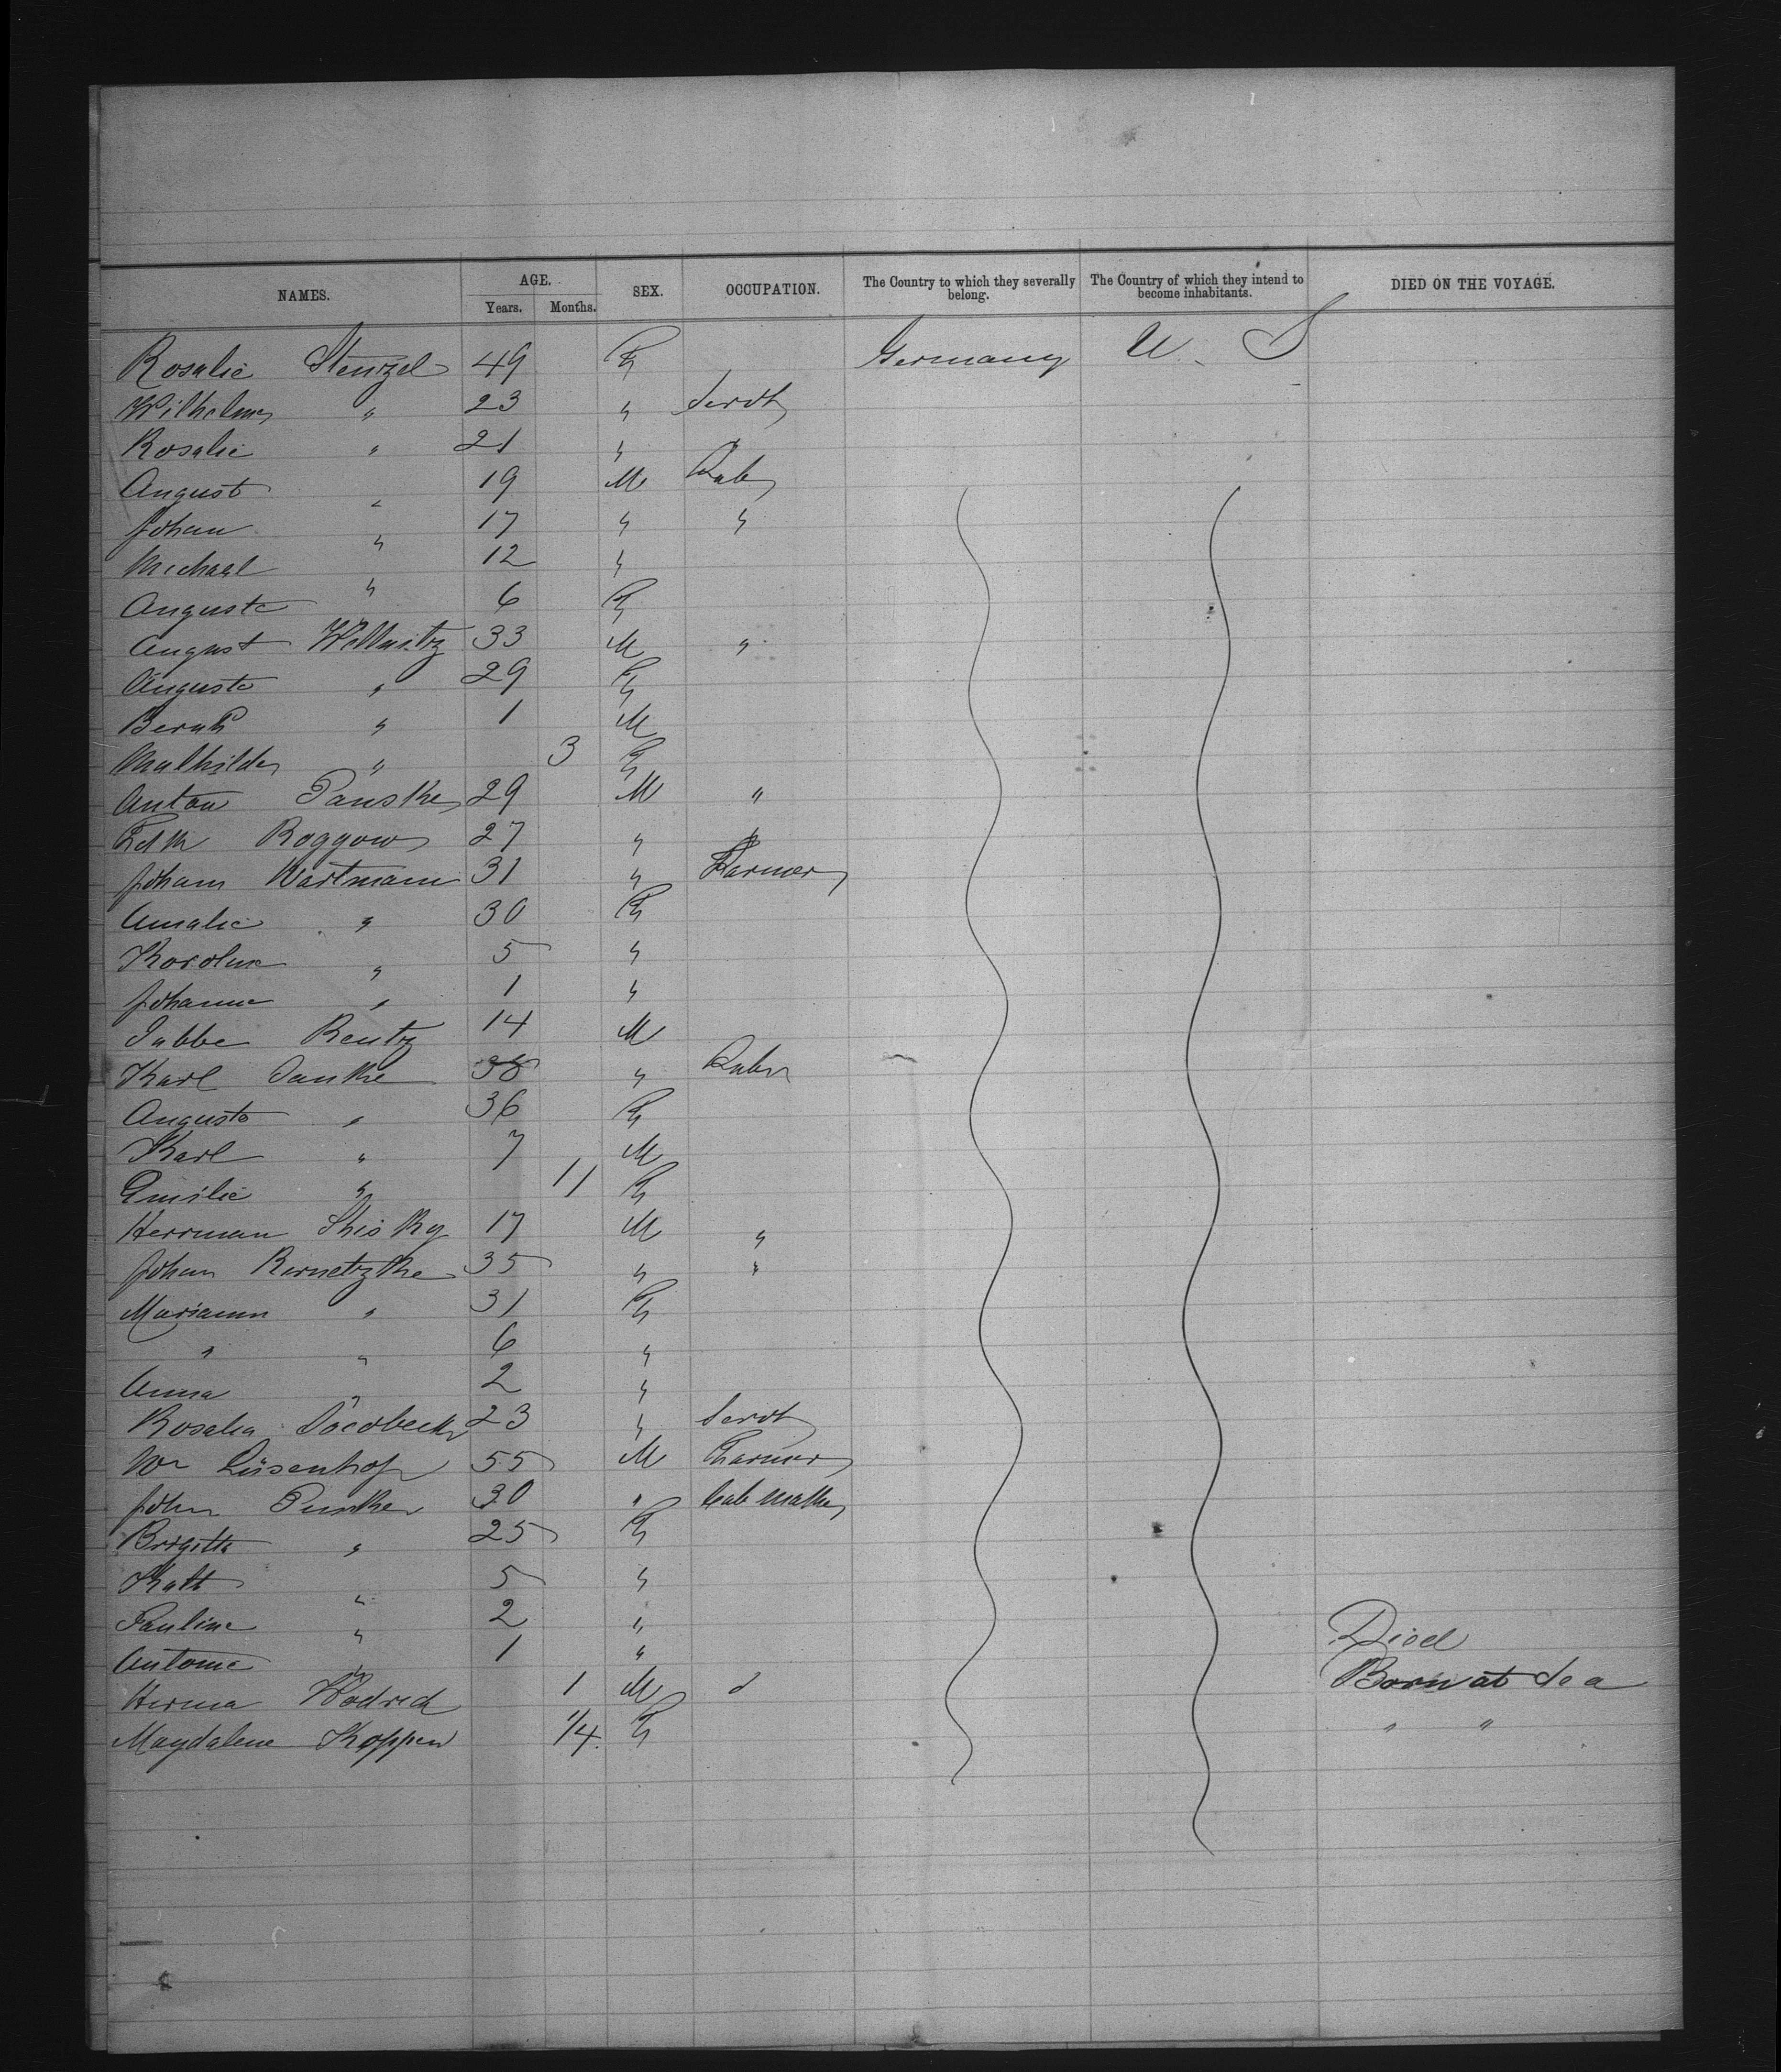 NAMES. AGE. Years. Months. SEX. OCCUPATION. The Country to which they severally belong. The Country of which they intend to become inhabitants. DIED ON THE VOYAGE.
Rosalie Stenzel 49 F Germany U. S
Wilhelm " 23 " Servt
Rosalie " 21 " "
August " 19 M Lab
Johan " 17 " "
Michael " 12 "
Auguste " 6 F
August Wellnitz 33 M "
Auguste " 29 F
Bernh " 1 M
Mathilde " 3 F
Anton Panske 29 M "
Edm Roggow 27 " "
Joham Wartmann 31 " Farmer
Amalie " 30 F
Karoline " 5 "
Johanne " 1 "
Jabbe Rentz 14 M
Karl Janke 38 " Labr
Auguste " 36 F
Karl " 7 M
Emilie " 11 F
Herrman 17 M "
Johan 35 " "
Mariann " 31 F
" " 6 "
Anna " 2 "
Rosalia 23 " Servt
Wm Lüsenhop 55 M Farmer
John Punke 30 " Cab Make
Brigitte " 25 F
Kath " 5 "
Pauline " 2 "
Antonie " 1 " Died
Herma 1 M Born at Sea
Magdalene Koppen 1/4 F " "